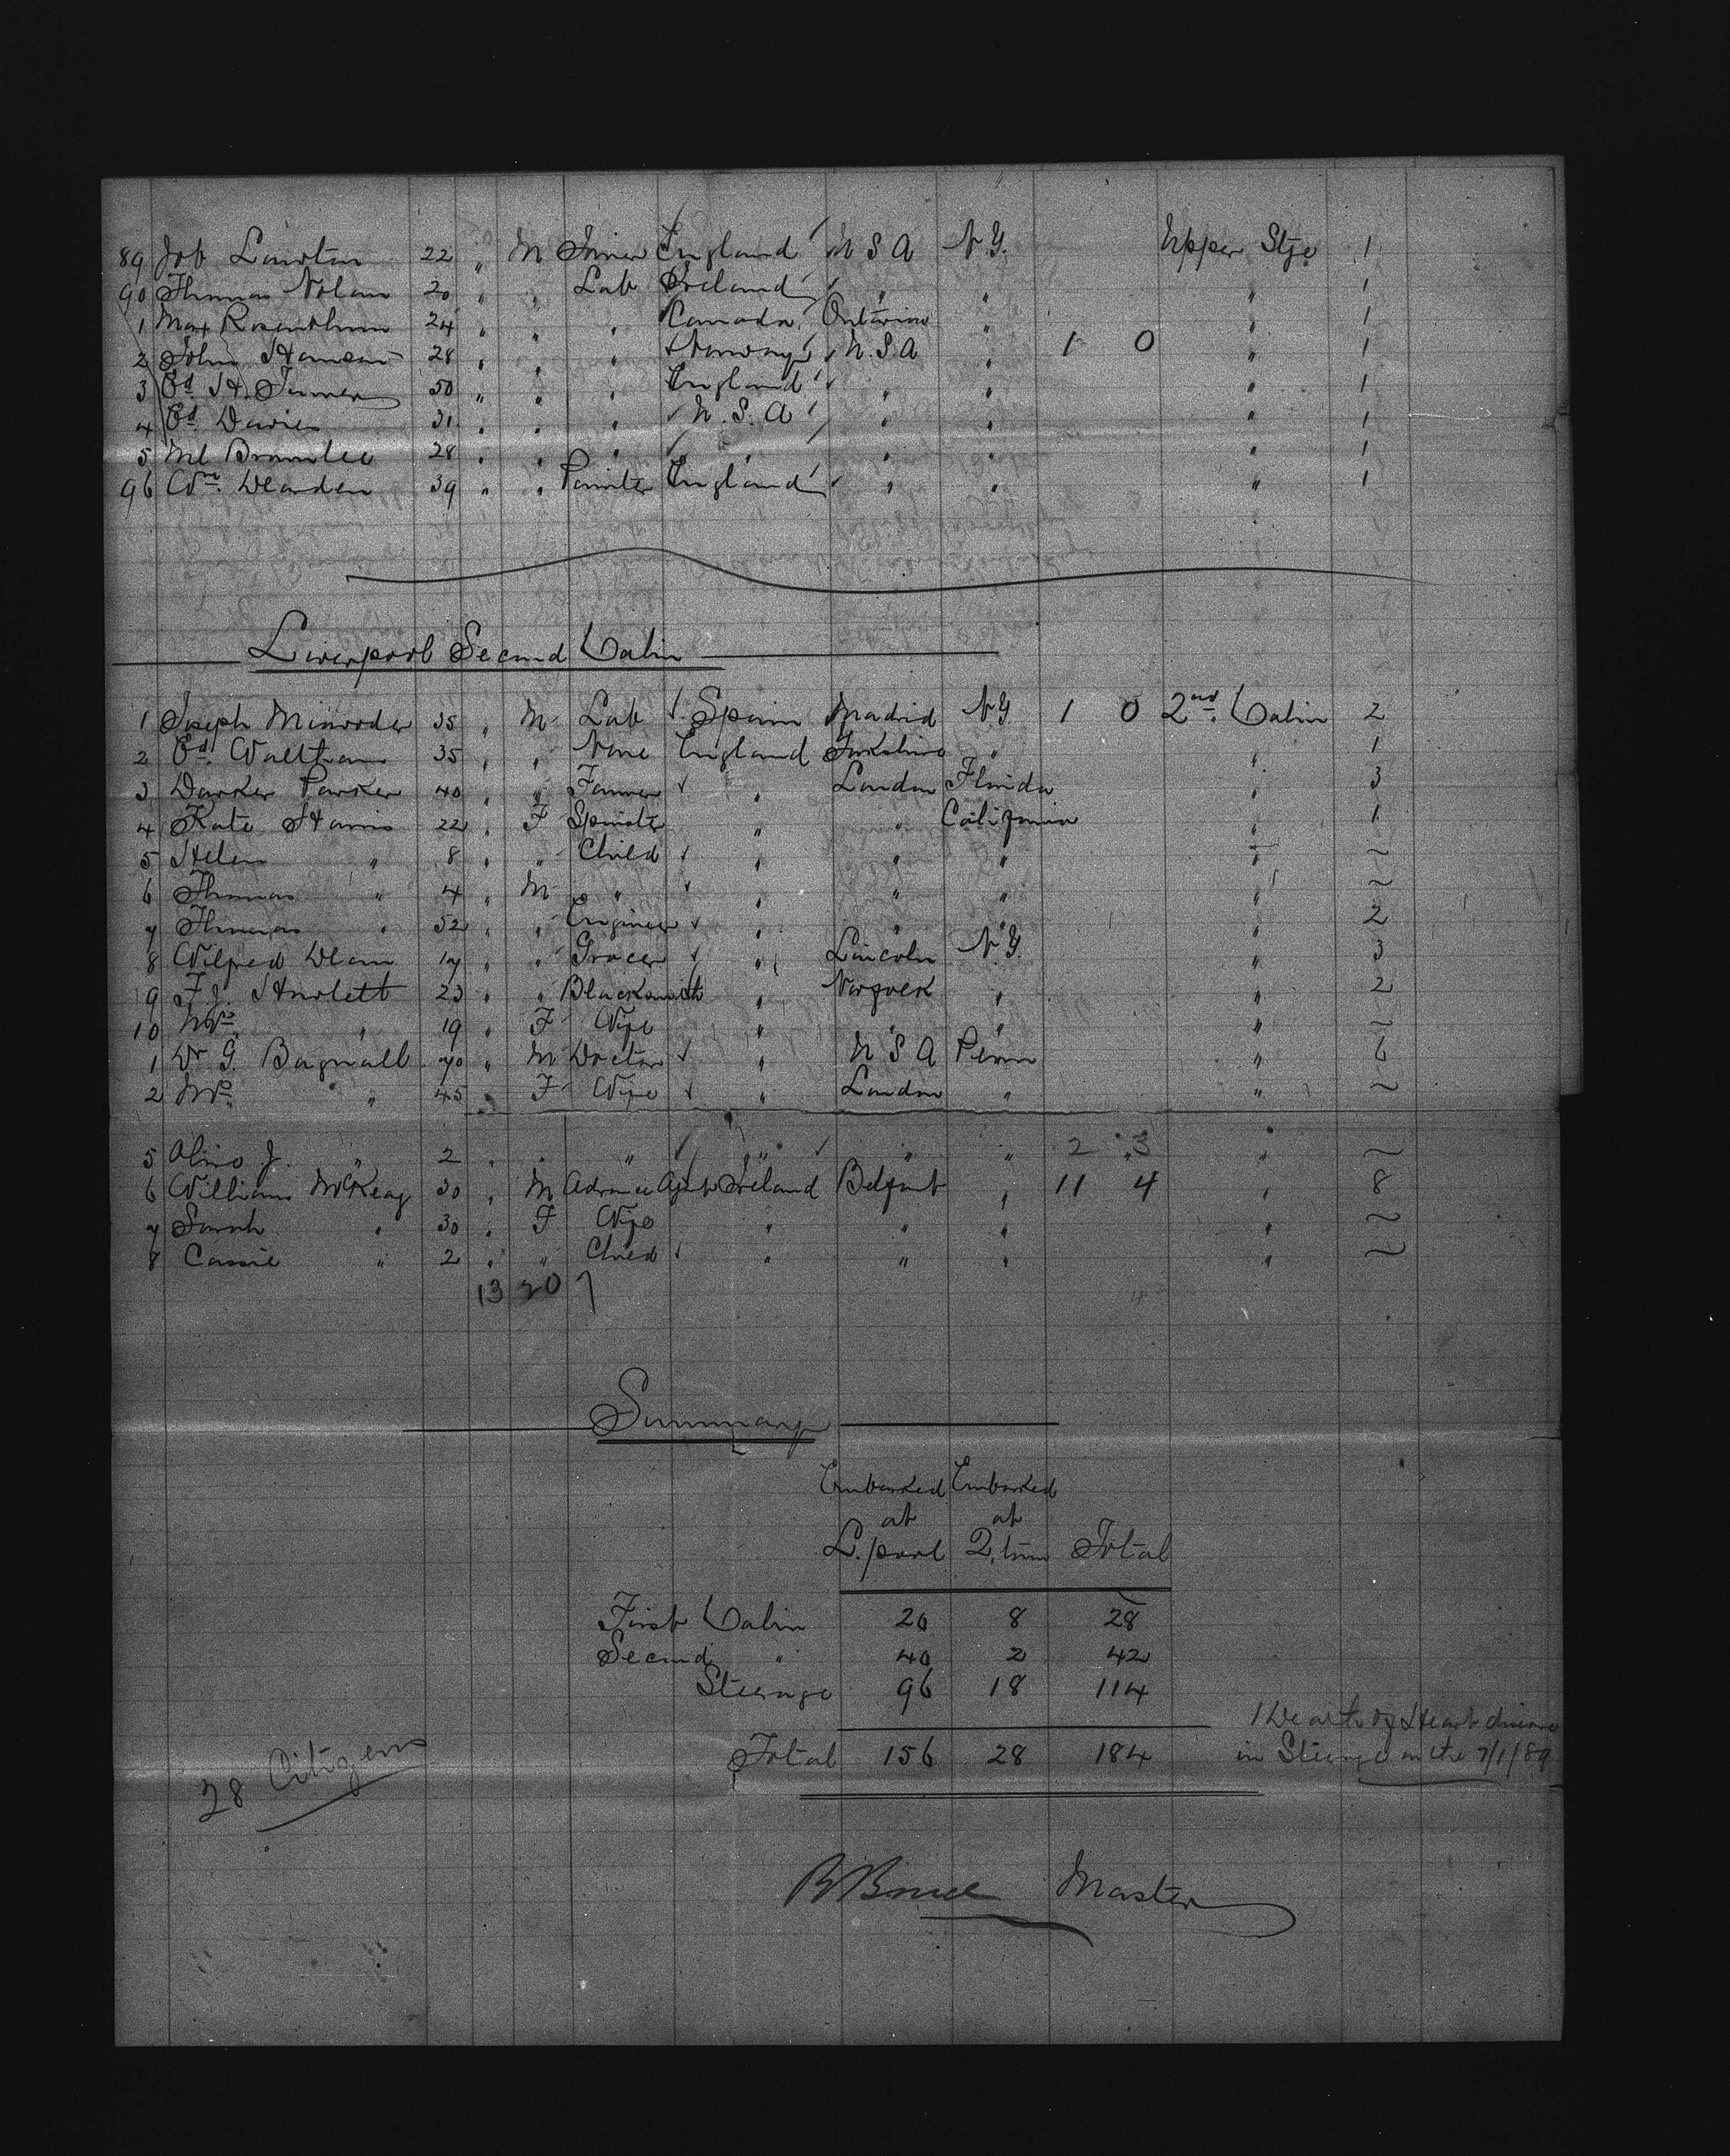 89 Job Lawton 22 " M Joiner England U S A N.Y. Upper Stge 1
90 Thomas Nolan 20 " " Lab Ireland " " " 1
1 Max Rosenthum 24 " " " Canada Ontario " " 1
2 John Hansen 28 " " " Norway U.S.A " 1 0 " 1
3 Ed. H. Turner 50 " " " England " " " 1
4 Ed Davies 31 " " " U.S.A " " " 1
5 Ml Brownlee 28 " " " " " " " 1
96 Wm. Dearden 39 " " Painter England " " " 1
Liverpool Second Cabin
1 Joseph 35 " M Lab Spain Madrid N.Y. 1 0 2nd. Cabin 2
2 Ed. Waltham 35 " " None England Yorkshire " " 1
3 Darker Parker 40 " " Farmer " London Florida " 3
4 Kate Harris 22 " F Spinster " " California " 1
5 Helen " 8 " " Child " " " " ~
6 Thomas " 4 " M " " " " " ~
7 Thomas " 52 " " Engineer " " " " 2
8 Wilfred Dean 17 " " Grocer " Lincoln N.Y. " 3
9 F.J. Hewlett 23 " " Blacksmith " Norfolk " " 2
10 Mrs. " 19 " F Wife " " " " ~
1 Dr G. Bagnall 70 " M Doctor " U S A Penn " 6
2 Mrs. " 45 " F Wife " London " " ~
5 Olive J. " 2 " " " " " " 2 3 " ~
6 William McKeag 30 " M Advance Agent Ireland Belfast " 11 4 " 8
7 Sarah " 30 " F Wife " " " " ~
8 Cassie " 2 " " Child " " " " ~
13 20 7
Summary
Embarked Embarked
at at
L.pool Q,town Total
First Cabin 20 8 28
Second " 40 2 42
Steerage 96 18 114
1 Death of Heart disease
Total 156 28 184 in Steerage on the 7/1/89
28 Citizens
Master